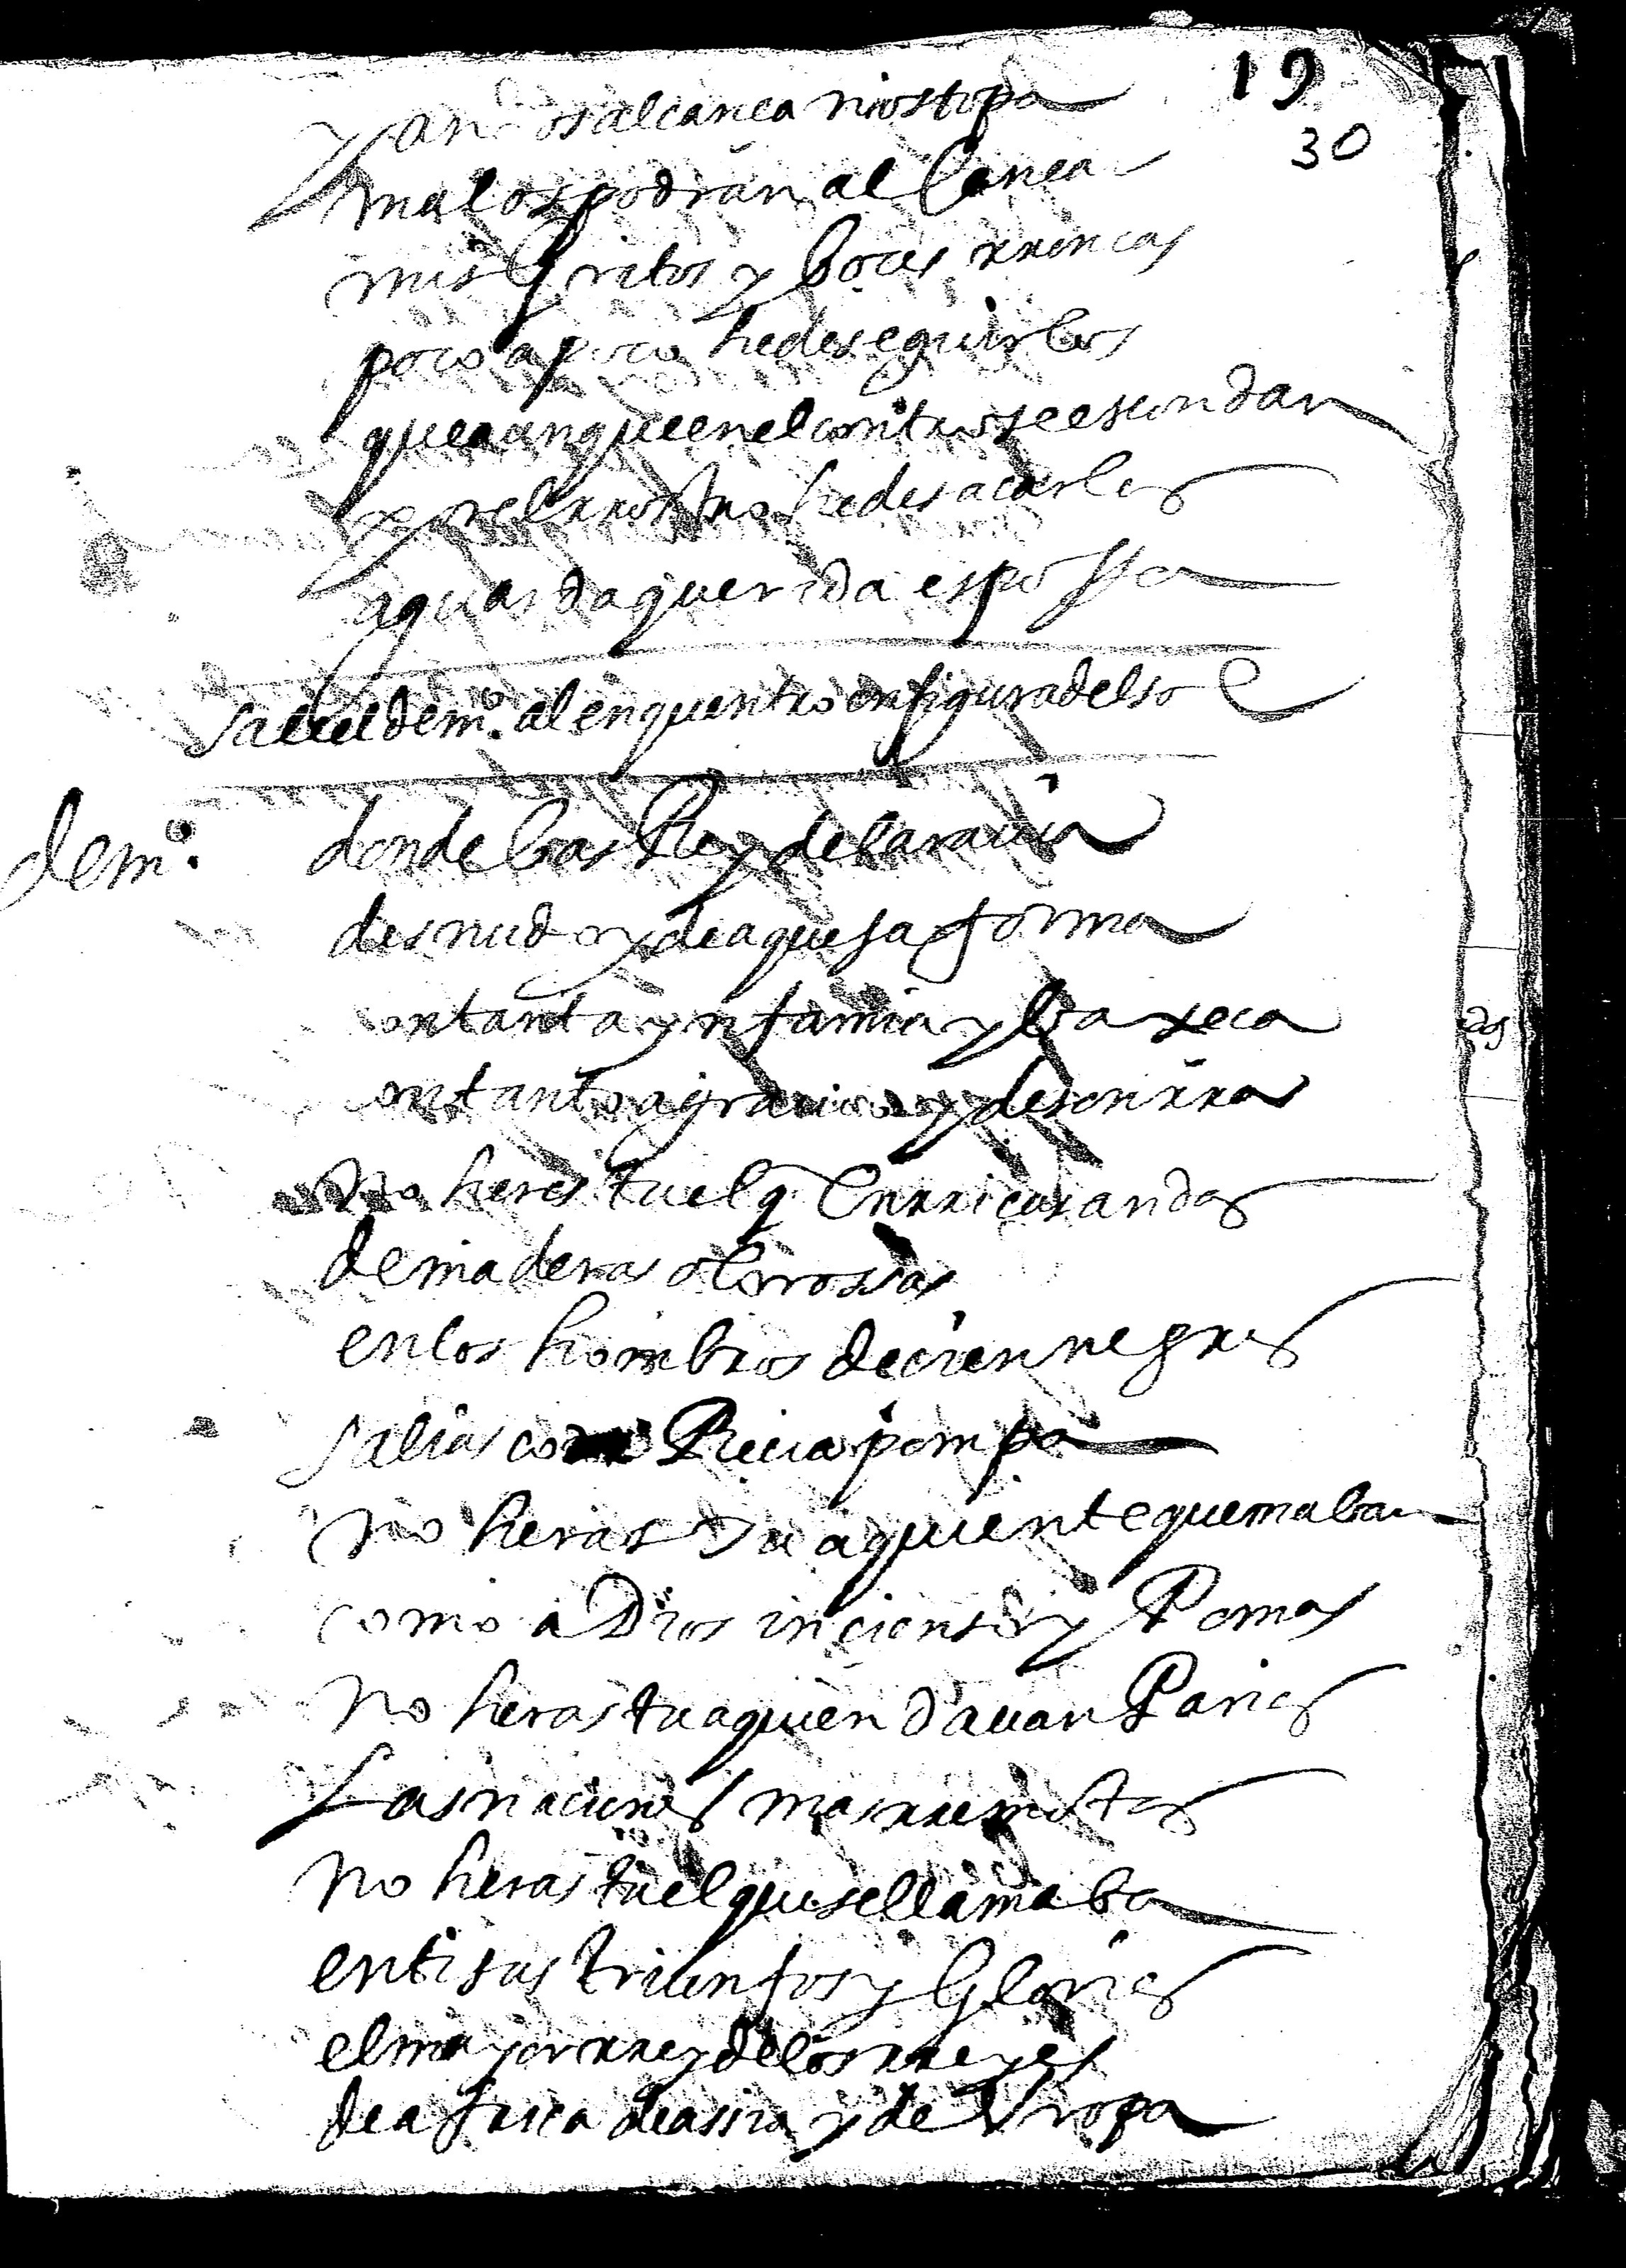 19
30
y aun os alcança ni os topa
mal os podran alCança
mis Gritos y boces rroncas
poco a poco he de seguirlos
que aunque en el sentro se escondan
por el rrostro he de sacarles
aguarda querida espossa
Sale el demº. al enquentro en figura del sol
demº. donde bas Rey de la rauia
desnudo y de aquesa forma
con tanta ynfamia y baxeca
con tanto agrauio y desonrra
No heres tu el q En rricas andas
de maderas olorossas
en los hombros de cien negros
salias con Rica pompa
No heras tu a quien te quemaban
como a Dios incienso y Pomas
No heras tu a quien dauan Parias
Las naciones mas rremotas
No heras tu el que se llamaba
en tisus triunfos y Glorias
el mayor rrey de los rreyes
de africa de assia y de Vropa